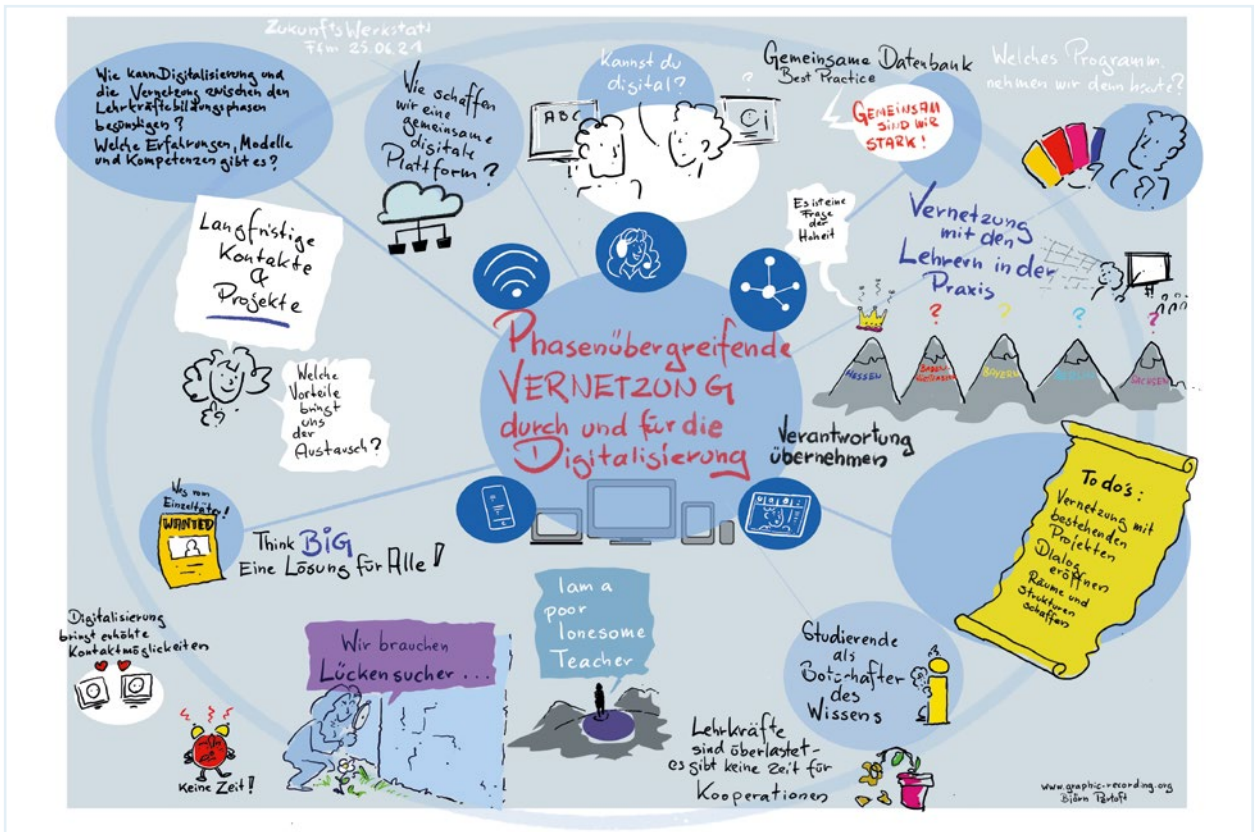 ZukunftsWerkstatt
Ffm 25.06.21
Wie kann Digitalisierung und
die Vernetzung zwischen den
Lehrkräftebildungsphasen
begünstigen?
Welche Erfahrungen, Modelle
und Kompetenzen gibt es?
Wie schaffen
wir eine
gemeinsame
digitale
Plattform?
Kannst du
digital?
ABC
?
Gemeinsame Datenbank
Best Practice
GEMEINSAM
SIND WIR
STARK!
Welches Programm
nehmen wir denn heute?
Langfristige
Kontakte
&
Projekte
Welche
Vorteile
bringt
uns
der
Austausch?
Es ist eine
Frage
der
Hoheit
Vernetzung
mit den
Lehrern in der
Praxis
? ? ? ?
HESSEN
BADEN-
BAYERN
BERLIN
SACHSEN
Phasenübergreifende
VERNETZUNG
durch und für die
Digitalisierung
Verantwortung
übernehmen
To do's:
Vernetzung mit
bestehenden
Projekten
Dialog
eröffnen
Räume und
Strukturen
schaffen
Weg vom
Einzeltäter!
WANTED
Think BIG
Eine Lösung für Alle!
Digitalisierung
bringt erhöhte
Kontaktmöglichkeiten
Keine Zeit!
Wir brauchen
Lückensucher...
I am a
poor
lonesome
Teacher
Studierende
als
Botschafter
des
Wissens
Lehrkräfte
sind überlastet-
es gibt keine Zeit für
Kooperationen
www.graphic-recording.org
Björn